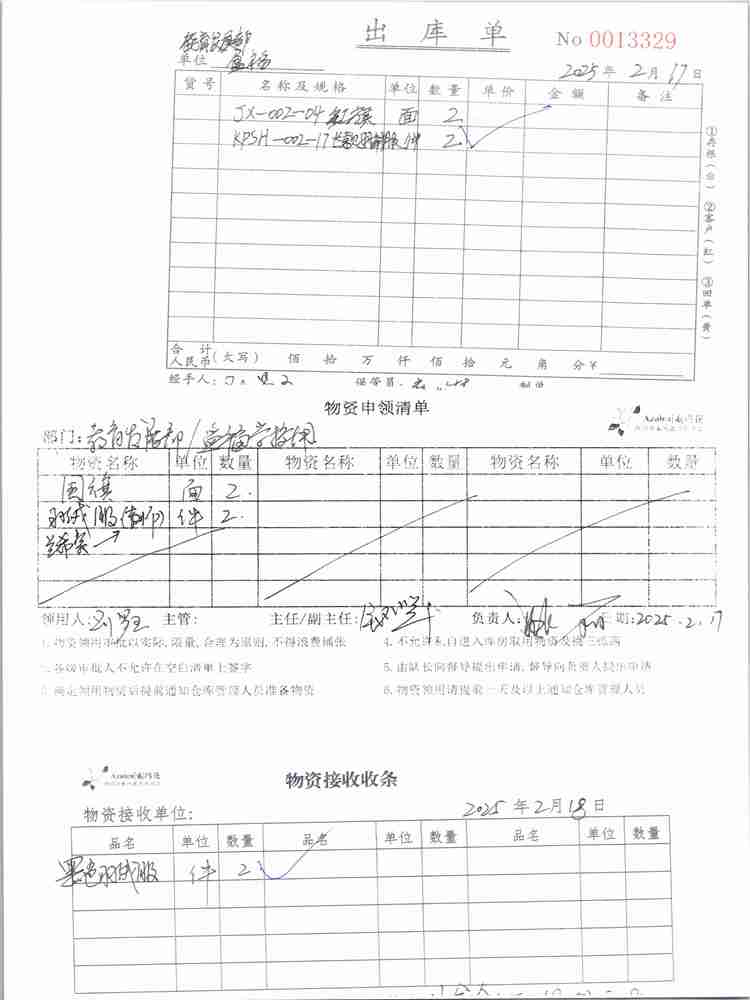 出库单
No 0013329
单位
2025年2月17日
货号 名称及规格 单位 数量 单价 金额 备注
JX-002-04 红旗 面 2
KPSH-002-17 件 2
①存根（白） ②客户（红） ③回单（黄）
合计
人民币(大写) 佰 拾 万 仟 佰 拾 元 角 分¥
经手人: 保管员: 制单
物资申领清单
部门:教育发展部/
物资名称 单位 数量 物资名称 单位 数量 物资名称 单位 数量
国旗 面 2.
羽绒服 件 2.
领用人: 主管: 主任/副主任: 负责人: 日期:2025.2.17
1.物资领用审批以实际,限量,合理为原则,不得浪费铺张
4.不允许私自进入库房取用物资
2.各级审批人不允许在空白清单上签字
5.由队长向督导提出申请,督导向负责人提出申请
3.确定领用物资后提前通知仓库管理人员准备物资
6.物资领用请提前一天及以上通知仓库管理人员
物资接收收条
物资接收单位:
2025年2月18日
品名 单位 数量 品名 单位 数量 品名 单位 数量
黑色羽绒服 件 2